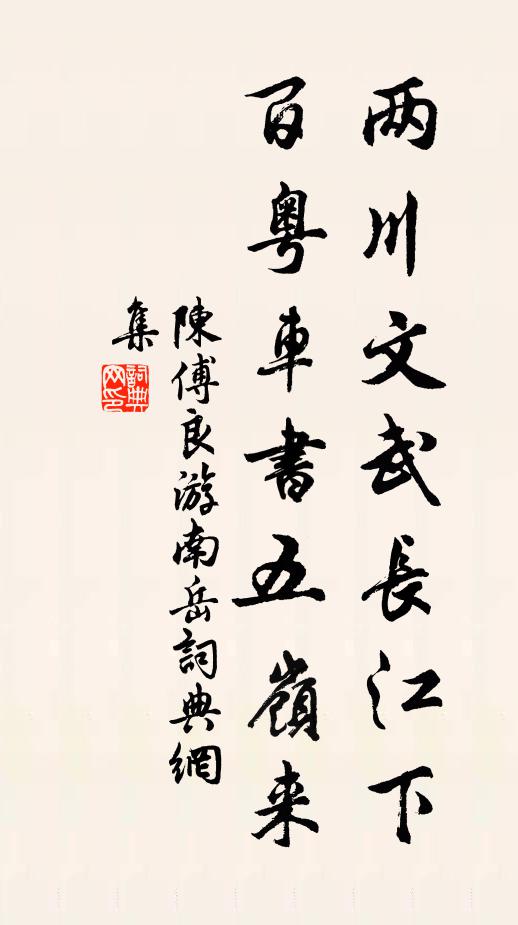 两川文武長江下
百粤車書五嶺来
陳傅良游南岳詞典網
集
詞典网印